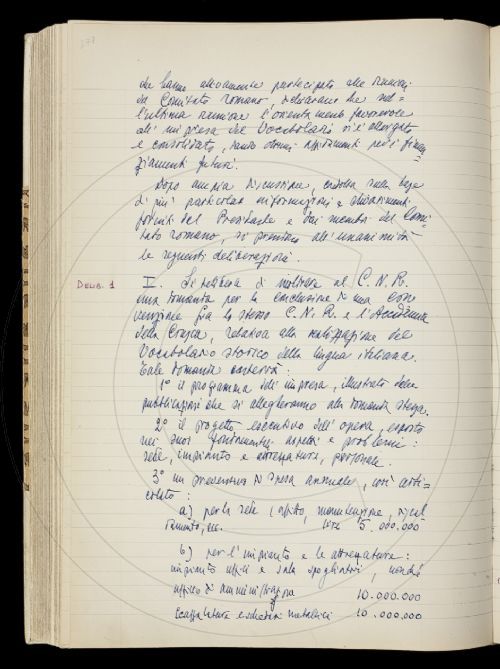 che hanno attivamente partecipato alle riunioni
del Comitato romano, dichiarano che nel=
l'ultima riunione l'orientamento favorevole
all'impresa del Vocabolario si è allargato
e consolidato, dando ottimi affidamenti per i finan=
ziamenti futuri.
Dopo ampia discussione, condotta sulla base
di più particolari informazioni e chiarimenti
forniti dal Presidente e dai membri del Comi=
tato romano, si prendono all'unanimità
le seguenti deliberazioni.
DELIB. 1
I. Si delibera di inoltrare al C.N.R.
una domanda per la conclusione di una con=
venzione fra lo stesso C.N.R. e l'Accademia
della Crusca, relativa alla realizzazione del
Vocabolario storico della lingua italiana.
Tale domanda conterrà:
1° il programma dell'impresa, illustrato dalle
pubblicazioni che si allegheranno alla domanda stessa.
2° il progetto esecutivo dell'opera, esposto
nei suoi fondamentali aspetti e problemi:
sede, impianto e attrezzatura, personale.
3° un preventivo di spesa annuale, così arti=
colato:
a) per la sede (affitto, manutenzione, riscal
damento, ecc. lire 5.000.000
b) per l'impianto e le attrezzature:
impianto uffici e sala spogliatori, nonché
ufficio di amministrazione 10.000.000
scaffalature e schedari metallici 10.000.000